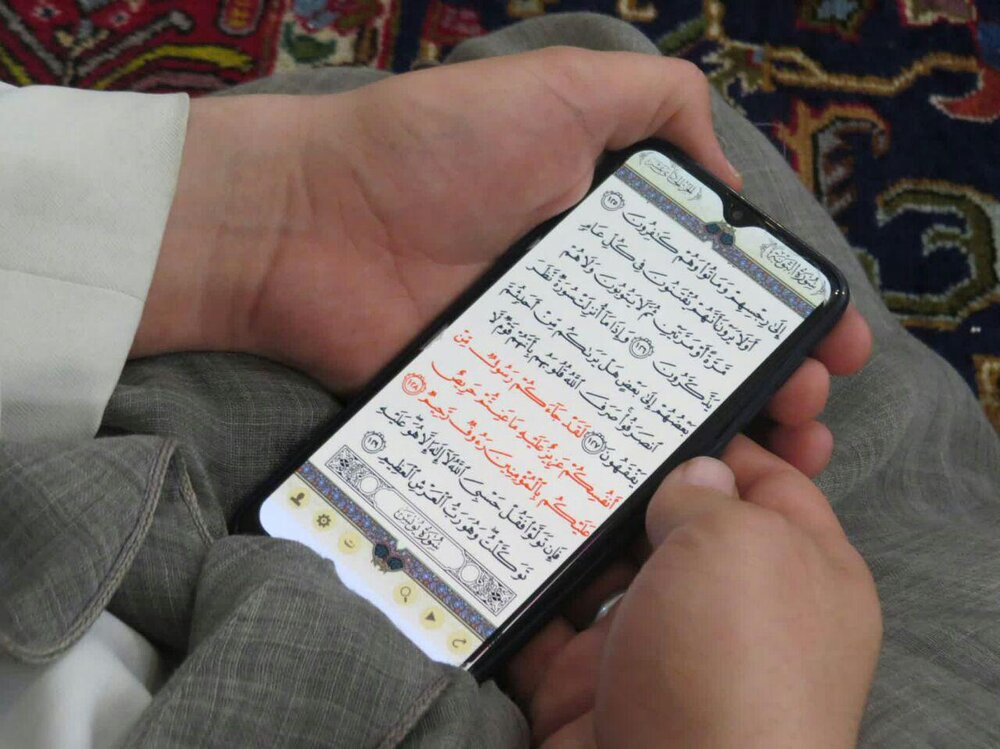 سُورَةُ التَّوْبَةِ
إِلَىٰ رِجْسِهِمْ وَمَاتُوا۟ وَهُمْ كَـٰفِرُونَ ١٢٥
أَوَلَا يَرَوْنَ أَنَّهُمْ يُفْتَنُونَ فِى كُلِّ عَامٍ
مَّرَّةً أَوْ مَرَّتَيْنِ ثُمَّ لَا يَتُوبُونَ وَلَا هُمْ
يَذَّكَّرُونَ ١٢٦ وَإِذَا مَآ أُنزِلَتْ سُورَةٌ نَّظَرَ
بَعْضُهُمْ إِلَىٰ بَعْضٍ هَلْ يَرَىٰكُم مِّنْ أَحَدٍ ثُمَّ
ٱنصَرَفُوا۟ صَرَفَ ٱللَّهُ قُلُوبَهُم بِأَنَّهُمْ قَوْمٌ لَّا
يَفْقَهُونَ ١٢٧ لَقَدْ جَآءَكُمْ رَسُولٌ مِّنْ
أَنفُسِكُمْ عَزِيزٌ عَلَيْهِ مَا عَنِتُّمْ حَرِيصٌ
عَلَيْكُم بِٱلْمُؤْمِنِينَ رَءُوفٌ رَّحِيمٌ ١٢٨
فَإِن تَوَلَّوْا۟ فَقُلْ حَسْبِىَ ٱللَّهُ لَآ إِلَـٰهَ إِلَّا هُوَ عَلَيْهِ
تَوَكَّلْتُ وَهُوَ رَبُّ ٱلْعَرْشِ ٱلْعَظِيمِ ١٢٩
سُورَةُ يُونُسَ
ت